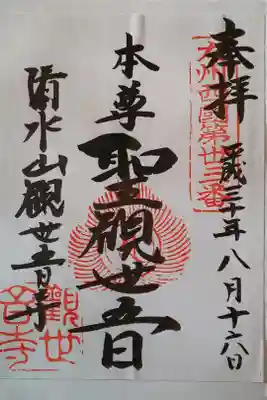 奉拝
九州西國第卅三番
平成三十年八月十六日
本尊
聖觀世音
清水山觀世音寺
觀世音寺